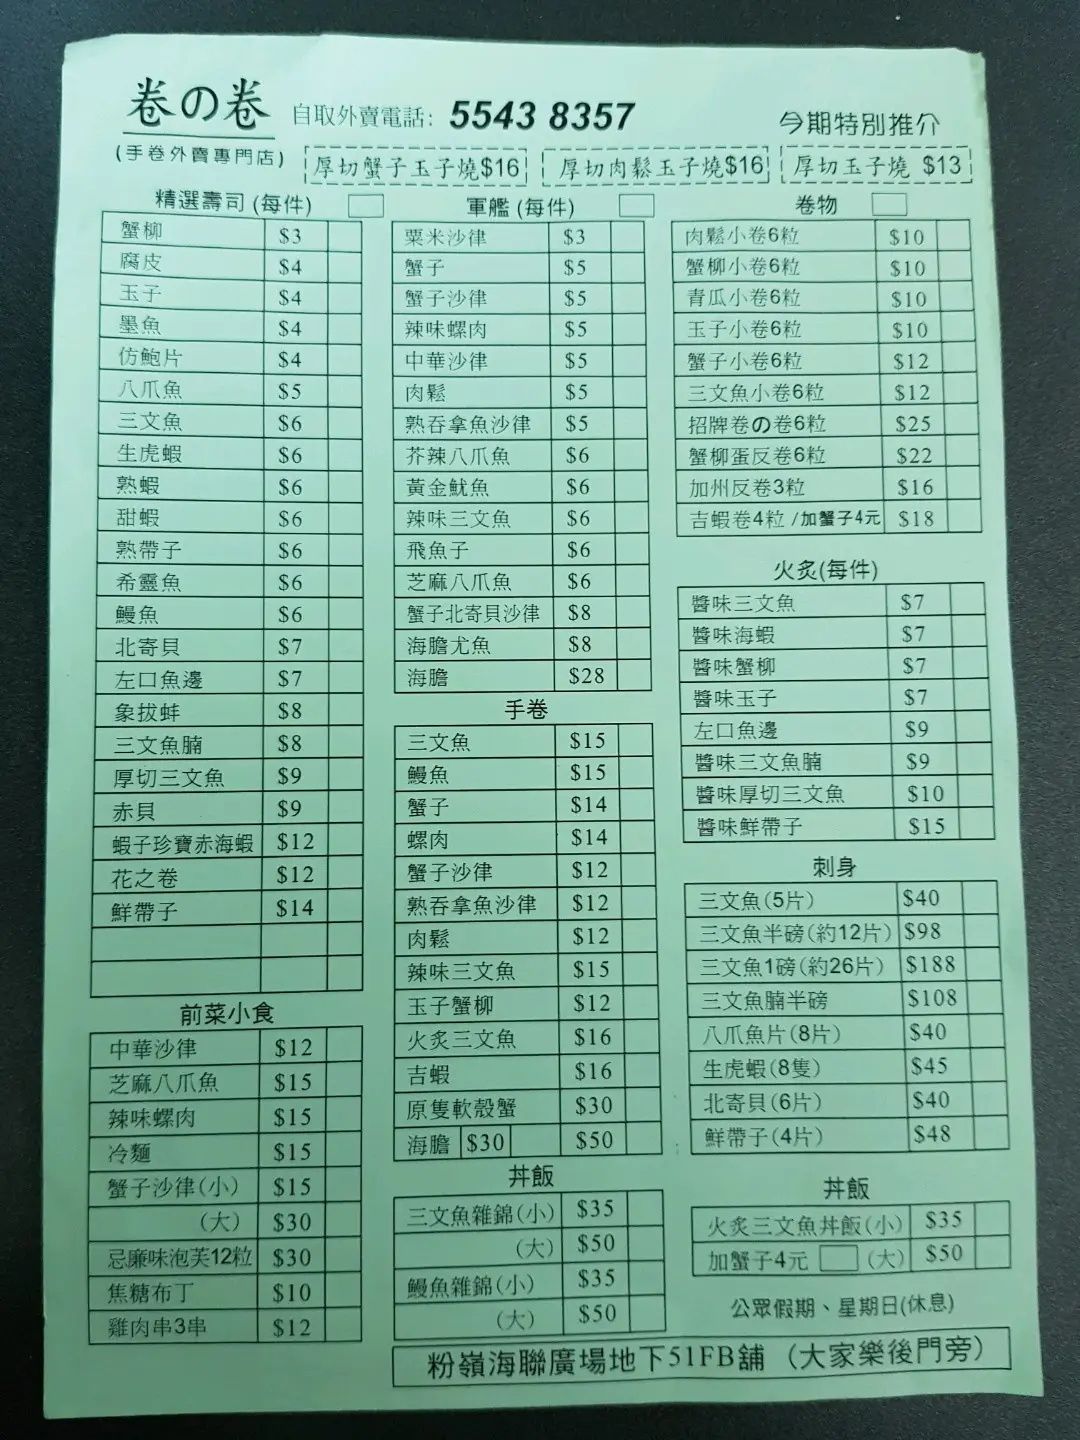 卷の卷
(手卷外賣專門店)
自取外賣電話: 5543 8357
今期特別推介
厚切蟹子玉子燒$16
厚切肉鬆玉子燒$16
厚切玉子燒 $13
精選壽司 (每件)
蟹柳 $3
腐皮 $4
玉子 $4
墨魚 $4
仿鮑片 $4
八爪魚 $5
三文魚 $6
生虎蝦 $6
熟蝦 $6
甜蝦 $6
熟帶子 $6
希靈魚 $6
鰻魚 $6
北寄貝 $7
左口魚邊 $7
象拔蚌 $8
三文魚腩 $8
厚切三文魚 $9
赤貝 $9
蝦子珍寶赤海蝦 $12
花之卷 $12
鮮帶子 $14
前菜小食
中華沙律 $12
芝麻八爪魚 $15
辣味螺肉 $15
冷麵 $15
蟹子沙律(小) $15
(大) $30
忌廉味泡芙12粒 $30
焦糖布丁 $10
雞肉串3串 $12
軍艦 (每件)
粟米沙律 $3
蟹子 $5
蟹子沙律 $5
辣味螺肉 $5
中華沙律 $5
肉鬆 $5
熟吞拿魚沙律 $5
芥辣八爪魚 $6
黃金魷魚 $6
辣味三文魚 $6
飛魚子 $6
芝麻八爪魚 $6
蟹子北寄貝沙律 $8
海膽尤魚 $8
海膽 $28
手卷
三文魚 $15
鰻魚 $15
蟹子 $14
螺肉 $14
蟹子沙律 $12
熟吞拿魚沙律 $12
肉鬆 $12
辣味三文魚 $15
玉子蟹柳 $12
火炙三文魚 $16
吉蝦 $16
原隻軟殼蟹 $30
海膽 $30 $50
丼飯
三文魚雜錦(小) $35
(大) $50
鰻魚雜錦(小) $35
(大) $50
卷物
肉鬆小卷6粒 $10
蟹柳小卷6粒 $10
青瓜小卷6粒 $10
玉子小卷6粒 $10
蟹子小卷6粒 $12
三文魚小卷6粒 $12
招牌卷の卷6粒 $25
蟹柳蛋反卷6粒 $22
加州反卷3粒 $16
吉蝦卷4粒 /加蟹子4元 $18
火炙(每件)
醬味三文魚 $7
醬味海蝦 $7
醬味蟹柳 $7
醬味玉子 $7
左口魚邊 $9
醬味三文魚腩 $9
醬味厚切三文魚 $10
醬味鮮帶子 $15
刺身
三文魚(5片) $40
三文魚半磅(約12片) $98
三文魚1磅(約26片) $188
三文魚腩半磅 $108
八爪魚片(8片) $40
生虎蝦(8隻) $45
北寄貝(6片) $40
鮮帶子(4片) $48
丼飯
火炙三文魚丼飯(小) $35
加蟹子4元 (大) $50
公眾假期、星期日(休息)
粉嶺海聯廣場地下51FB舖 (大家樂後門旁)